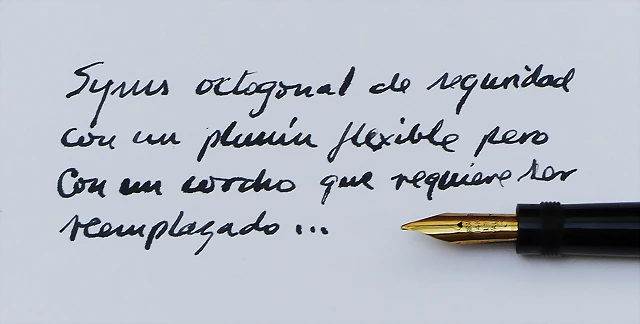 Syrus octogonal de seguridad
con un plumín flexible pero
Con un corcho que requiere ser
remplazado...